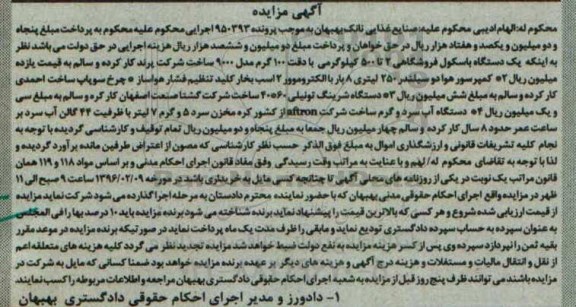 آگهی مزایده
محکوم له:الهام ادیبی محکوم علیه:صنایع غذایی نانک بهبهان به موجب پرونده ۹۵۰۳۹۳ اجرایی محکوم علیه محکوم به پرداخت مبلغ پنجاه
و دو میلیون و یکصد و هفتاد هزار ریال در حق خواهان و پرداخت مبلغ دو میلیون و ششصد هزار ریال هزینه اجرایی در حق دولت می باشد نظر
به اینکه یک دستگاه باسکول فروشگاهی ۲ تا ۵۰۰ کیلوگرمی با دقت ۱۰۰ گرم مدل ۹۰۰۰ ساخت شرکت پرند کار کرده و سالم به قیمت یازده
میلیون ریال ۲* کمپرسور هوا دو سیلندر ۲۵۰ لیتری ۸ بار با الکتروموتور ۲ اسب بخار کلید تنظیم فشار هواساز * چرخ سوپاپ ساخت احمدی
کار کرده و سالم به مبلغ شش میلیون ریال ۳* دستگاه شرینگ تونلی ۶۰*۴۰ ساخت شرکت گشتا صنعت اصفهان کار کرده و سالم به مبلغ سی
و یک میلیون ریال ۴* دستگاه آب سرد و گرم ساخت شرکت aftron از کشور کره مخزن سرد ۵ و گرم ۷ لیتر با ظرفیت ۴۴ گالن آب سرد بر
ساعت عمر حدود ۸ سال کار کرده و سالم چهار میلیون ریال جمعا به مبلغ پنجاه و دو میلیون ریال تمام توقیف و کارشناسی گردیده با توجه به
نجام کلیه تشریفات قانونی و ارزشگذاری اموال به مبلغ فوق الذکر حسب نظر کارشناسی که مصون از اعتراض طرفین مانده برآورد گردیده و
لذا با توجه به تقاضای محکوم له / لهم و با عنایت به مراتب وقت رسیدگی وفق مفاد قانون اجرای احکام مدنی و بر اساس مواد ۱۱۸ و ۱۱۹ همان
قانون مراتب یک نوبت در یکی از روزنامه های محلی آگهی تا چنانچه کسی مایل به خریداری باشد در مورخه ۱۳۹۶/۰۲/۰۹ ساعت ۹ صبح الی ۱۱
ظهر در مزایده واقع اجرای احکام حقوقی مدنی بهبهان که با حضور نماینده محترم دادستان به مرحله اجرا گذارده می شود شرکت نماید مزایده
از قیمت ارزیابی شده شروع و هر کسی که بالاترین قیمت را پیشنهاد نماید برنده شناخته می شود برنده مزایده باید ۱۰ درصد بها را فی المجلس
به عنوان سپرده به حساب سپرده دادگستری تودیع نماید و مابقی را ظرف مدت یک ماه پرداخت نماید در صورتیکه برنده مزایده در موعد مقرر
بقیه ثمن را نپردازد سپرده وی پس از کسر هزینه مزایده به نفع دولت ضبط خواهد شد مزایده تجدید نظر می گردد کلیه هزینه های متعلقه اعم
از نقل و انتقال مالیات و مستغلات و هزینه درج آگهی و هزینه های دیگر بر عهده برنده مزایده خواهد بود ضمنا کسانی که مایل به شرکت در
مزایده باشند می توانند ظرف پنج روز قبل از مزایده به شعبه اجرای احکام حقوقی دادگستری بهبهان مراجعه و اطلاعات مربوطه را کسب نمایند
۱- دادورز و مدیر اجرای احکام حقوقی دادگستری بهبهان